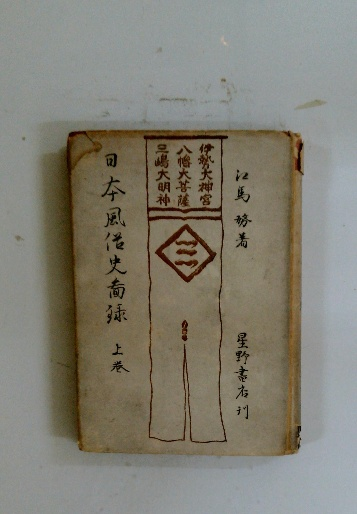 江馬務著
星野書店刊
伊勢大神宮
八幡大菩薩
三嶋大明神
日本風俗史圖録 上巻